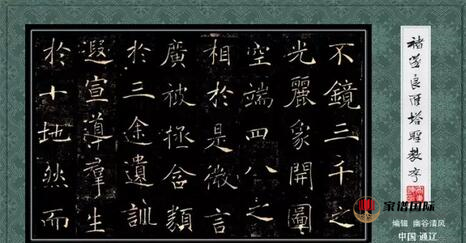 褚遂良雁塔聖教序
不鏡三千之
光麗象開圖
空端四八之
相於是微言
廣被拯含類
於三途遺訓
遐宣導羣生
於十地然而
家谱国际
编辑 幽谷清风
中国·通辽